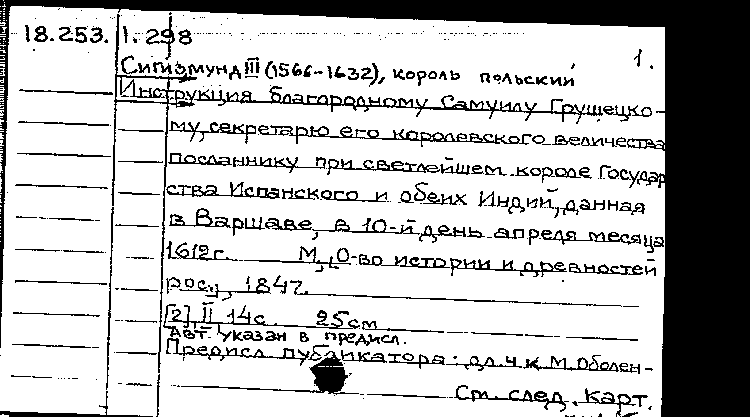 18.253. 1.298
1.
Сигизмунд III (1566-1632), король польский
Инструкция благородному Самуилу Грушецко-
му, секретарю его королевского величества
посланнику при светлейшем короле Государ
ства Испанского и обеих Индий, данная
в Варшаве, в 10-й день апреля месяца
1612г. М., О-во истории и древностей
рос., 1847.
[2], II, 14с. 25см
Авт. указан в предисл.
Предисл. публикатора: дл. ч. к. М. Оболен-
См. след. карт.